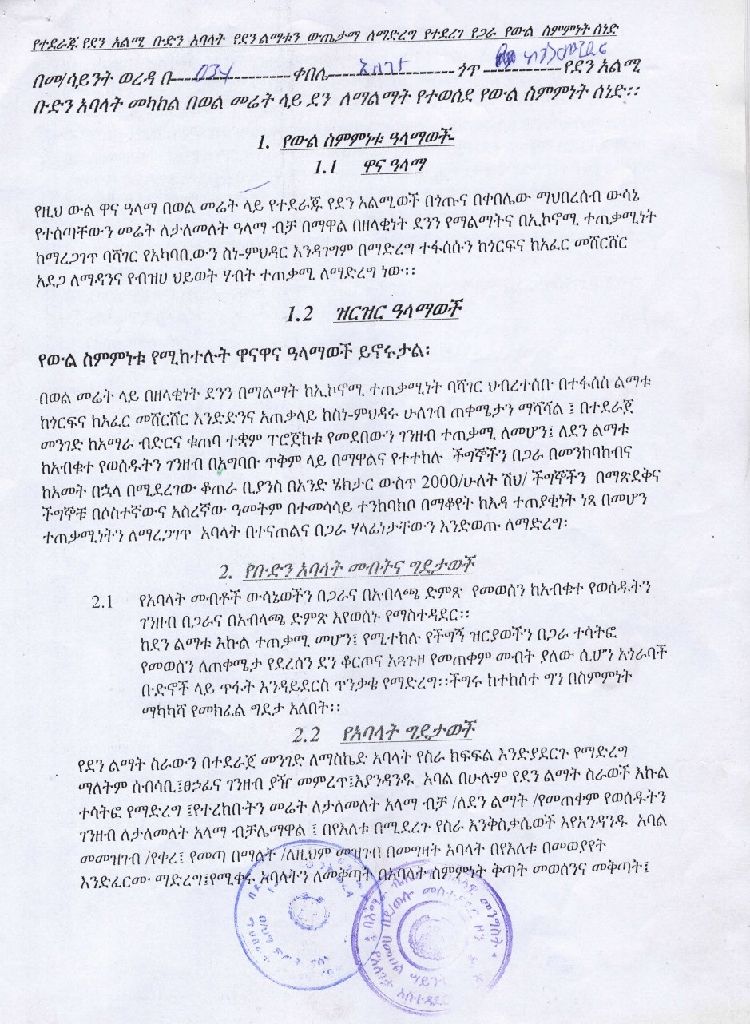 የተደራጁ የደን አልሚ ቡድን አባላት የደን ልማቱን ውጤታማ ለማድረግ የተደረገ የጋራ የውል ስምምነት ሰነድ
በመ/ሳይንት ወረዳ በ 034 ቀበሌ ጎጥ የደን አልሚ
ቡድን አባላት መካከል በወል መሬት ላይ ደን ለማልማት የተወሰደ የውል ስምምነት ሰነድ፡፡
1. የውል ስምምነቱ ዓላማወች
1.1 ዋና ዓላማ
የዚህ ውል ዋና ዓላማ በወል መሬት ላይ የተደራጁ የደን አልሚወች በጎጡና በቀበሌው ማህበረሰብ ውሳኔ
የተሰጣቸውን መሬት ለታለመለት ዓላማ ብቻ በማዋል በዘላቂነት ደንን የማልማትና በኢኮኖሚ ተጠቃሚነት
ከማረጋገጥ ባሻገር የአካባቢውን ስነ-ምህዳር እንዳገግም በማድረግ ተፋሰሱን ከጎርፍና ከአፈር መሸርሸር
አደጋ ለማዳንና የብዝሀ ህይወት ሃብት ተጠቃሚ ለማድረግ ነው፡፡
1.2 ዝርዝር ዓላማወች
የውል ስምምነቱ የሚከተሉት ዋናዋና ዓላማወች ይኖሩታል፡
በወል መሬት ላይ በዘላቂነት ደንን በማልማት ከኢኮኖሚ ተጠቃሚነት ባሻገር ህብረተሰቡ በተፋሰስ ልማቱ
ከጎርፍና ከአፈር መሸርሸር እንድድንና አጠቃላይ ከስነ-ምህዳሩ ሁለገብ ጠቀሜታን ማሻሻል ፤ በተደራጀ
መንገድ ከአማራ ብድርና ቁጠባ ተቋም ፕሮጀክቱ የመደበውን ገንዘብ ተጠቃሚ ለመሆን፤ ለደን ልማቱ
ከአብቁተ የወሰዱትን ገንዘብ በአግባቡ ጥቅም ላይ በማዋልና የተተከሉ ችግኞችን በጋራ በመንከባከብና
ከአመት በኋላ በሚደረገው ቆጠራ ቢያንስ በአንድ ሄክታር ውስጥ 2000/ሁለት ሽህ/ ችግኞችን በማጽደቅና
ችግኞቹ በሶስተኛውና አስረኛው ዓመትም በተመሳሳይ ተንከባክቦ በማቆየት ከእዳ ተጠያቂነት ነጻ በመሆን
ተጠቃሚነትን ለማረጋገጥ አባላት በተናጠልና በጋራ ሃላፊነታቸውን እንድወጡ ለማድረግ፡
2. የቡድን አባላት መብትና ግዴታወች
2.1 የአባላት መብቶች ውሳኔወችን በጋራና በአብላጫ ድምጽ የመወሰን ከአብቁተ የወሰዱትን
ገንዘብ በጋራና በአብላጫ ድምጽ እየወሰኑ የማስተዳደር፡፡
ከደን ልማቱ እኩል ተጠቃሚ መሆን፤ የሚተከሉ የችግኝ ዝርያወችን በጋራ ተሳትፎ
የመወሰን ለጠቀሜታ የደረሰን ደን ቆርጦና አጓጉዞ የመጠቀም መብት ያለው ሲሆን አጎራባች
ቡድኖች ላይ ጥፋት እንዳይደርስ ጥንቃቄ የማድረግ፡፡ችግሩ ከተከሰተ ግን በስምምነት
ማካካሻ የመክፈል ግዴታ አለበት፡፡
2.2 የአባላት ግዴታወች
የደን ልማት ስራውን በተደራጀ መንገድ ለማስኬድ አባላት የስራ ክፍፍል እንድያደርጉ የማድረግ
ማለትም ሰብሳቢ፤ፀኃፊና ገንዘብ ያዥ መምረጥ፤እያንዳንዱ አባል በሁሉም የደን ልማት ስራወች እኩል
ተሳትፎ የማድረግ ፤የተረከቡትን መሬት ለታለመለት አላማ ብቻ /ለደን ልማት /የመጠቀም የወሰዱትን
ገንዘብ ለታለመለት አላማ ብቻሌማዋል ፤ በየእለቱ በሚደረጉ የስራ እንቅስቃሴወች እየአንዳንዱ አባል
መመዝገብ /የቀረ፤ የመጣ በማለት /ለዚህም መዝገብ በመግዛት አባላት በየእለቱ በመወያየት
እንድፈርሙ ማድረግ፤የሚቀሩ አባላትን ለመቅጣት በአባላት ስምምነት ቅጣት መወሰንና መቅጣት፤